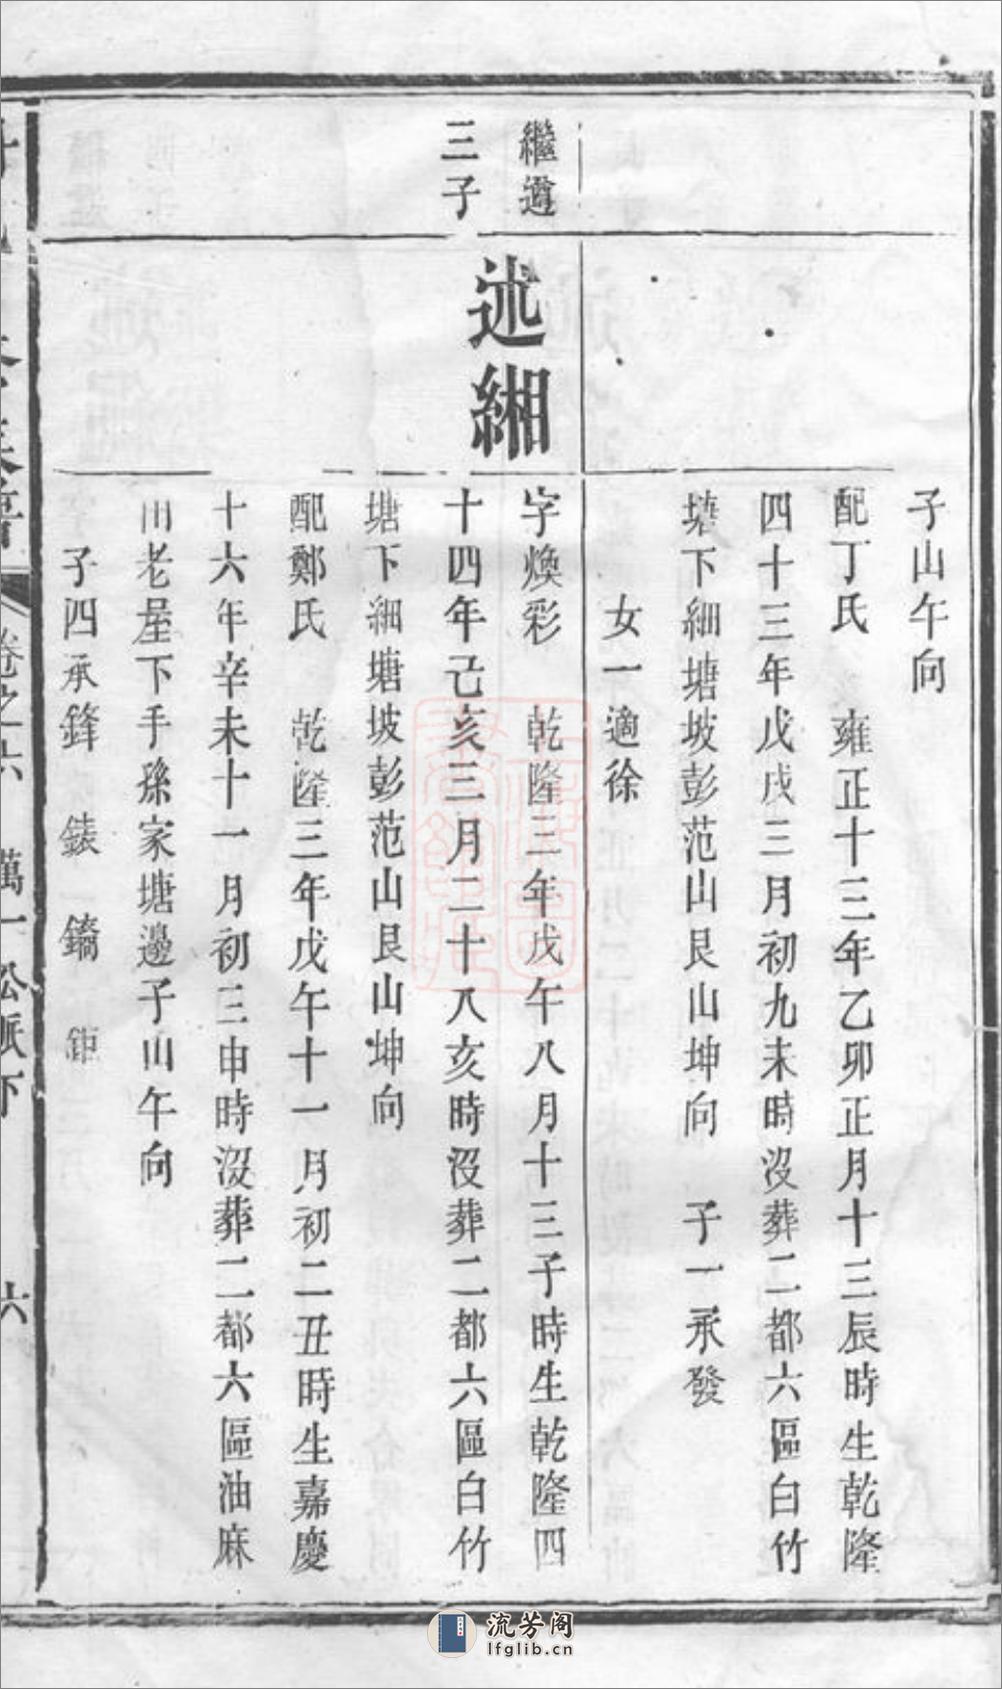 子山午向
配丁氏 雍正十三年乙卯正月十三辰時生乾隆
四十三年戊戌三月初九未時沒葬二都六區白竹
塘下細塘坡彭范山艮山坤向 子一承發
女一適徐
繼遵
三子
述緗
字煥彩 乾隆三年戊午八月十三子時生乾隆四
十四年己亥三月二十八亥時沒葬二都六區白竹
塘下細塘坡彭范山艮山坤向
配鄭氏 乾隆三年戊午十一月初二丑時生嘉慶
十六年辛未十一月初三申時沒葬二都六區油麻
田老屋下手孫家塘邊子山午向
子四承鋒 錶 鐈 鉅
卷之六 萬一公派下 六
流芳阁
lfglib.cn